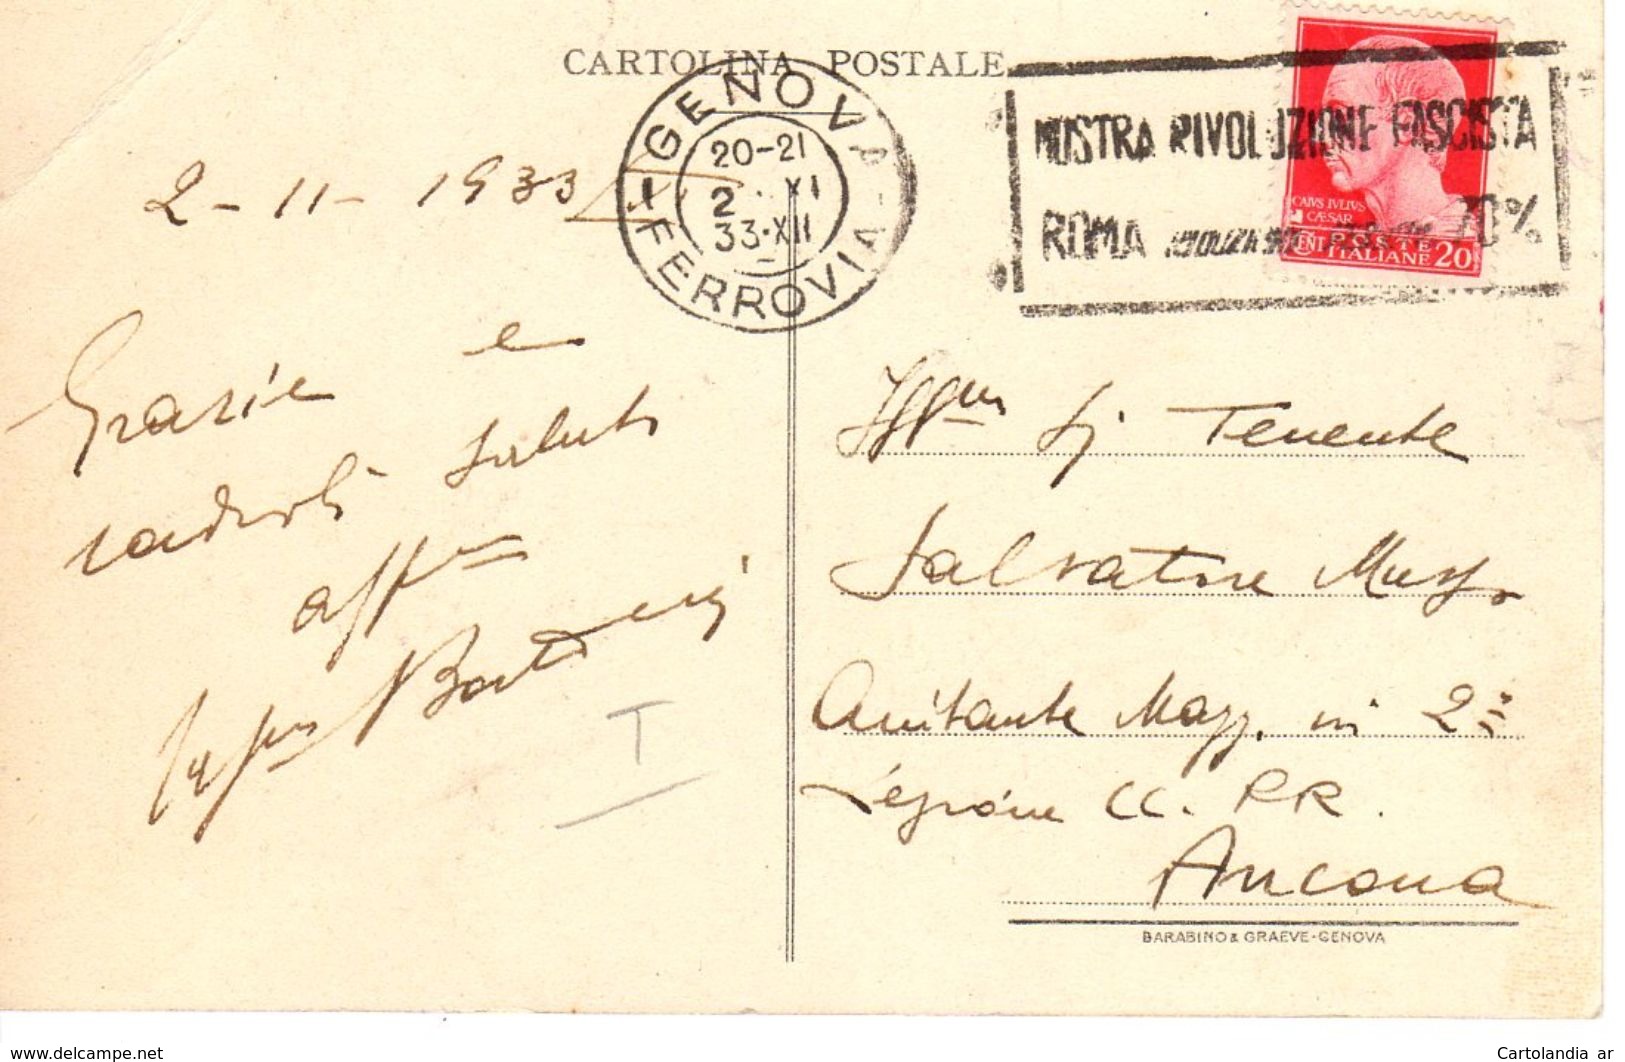 CARTOLINA POSTALE
GENOVA FERROVIA
20-21
2 · XI
33·XII
MOSTRA RIVOLUZIONE FASCISTA
ROMA 70%
CAIVS IVLIVS
CÆSAR
CENT POSTE
ITALIANE 20
2-11-1933
Grazie e
cordiali saluti
aff.mo
Ill.mo Sig. Tenente
Salvatore
Aiutante Magg. in 2a
Legione CC. RR.
Ancona
I
BARABINO & GRAEVE-GENOVA
https://www.delcampe.net
Cartolandia ar